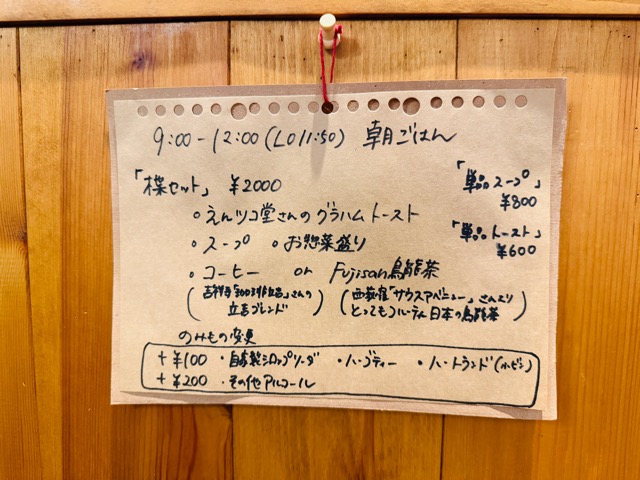 9:00-12:00 (LO11:50) 朝ごはん
「楪セット」 ¥2000
「単品スープ」
¥800
・えんツコ堂さんのグラハムトースト
「単品トースト」
¥600
・スープ ・お惣菜盛り
・コーヒー or Fujisan烏龍茶
(吉祥寺
さんの
吉吉ブレンド)
(西荻窪「サウスアベニュー」さんより
とってもフルーティ日本の烏龍茶)
のみもの変更
+¥100 ・自家製シロップソーダ ・ハーブティー ・ハートランド(小ビン)
+¥200 ・その他アルコール